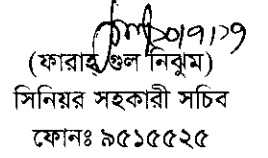 (ফারাহ গুল নিঝুম)
সিনিয়র সহকারী সচিব
ফোনঃ ৯৫১৫৫২৫